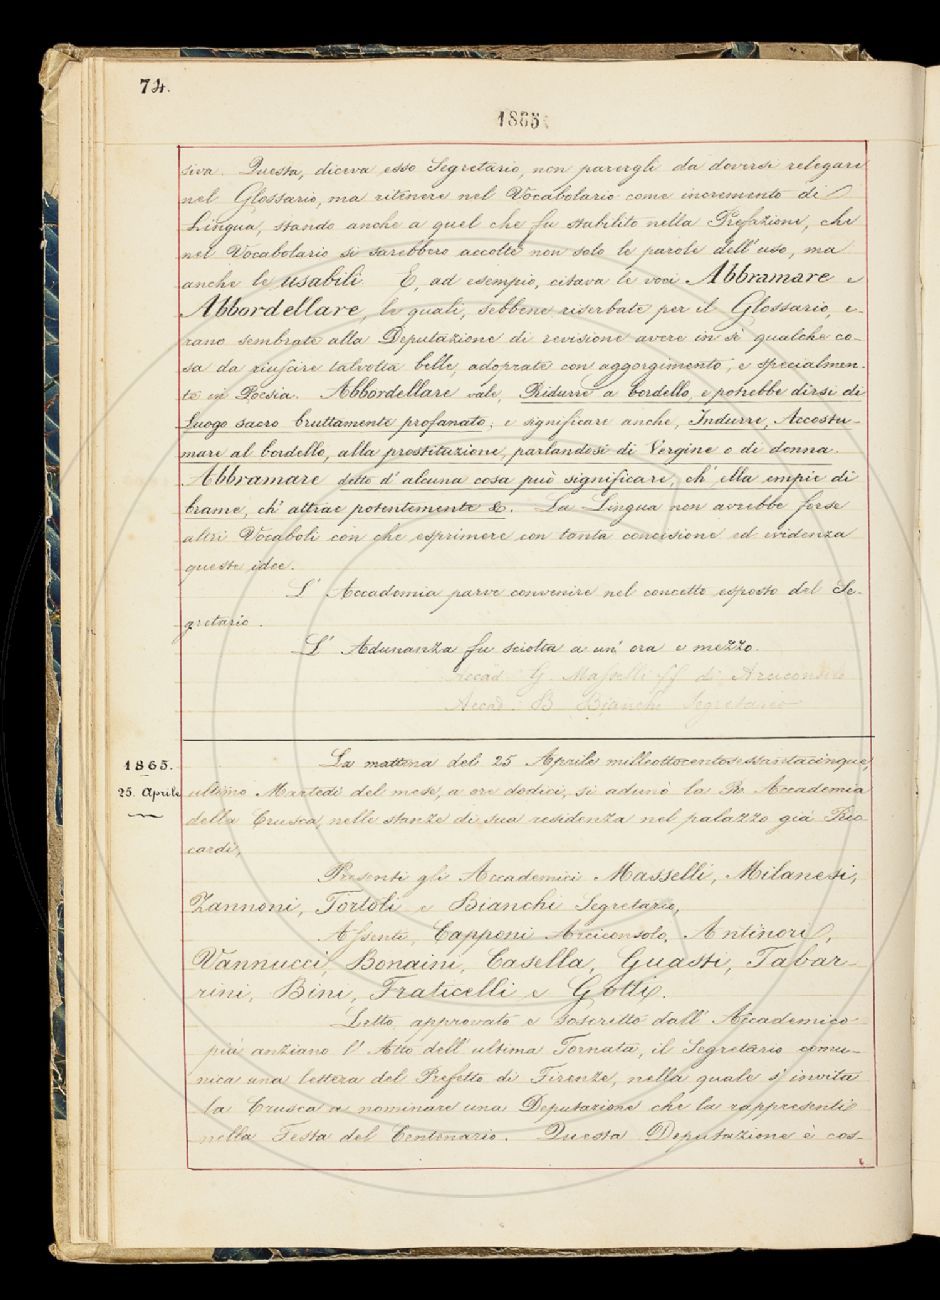 74.
1865.
siva. Questa, diceva esso Segretario, non parergli da doversi relegare
nel Glossario, ma ritenere nel Vocabolario come incremento di
Lingua, stando anche a quel che fu stabilito nella Prefazione, che
nel Vocabolario si sarebbero accolte non solo le parole dell'uso, ma
anche le usabili. E, ad esempio, citava le voci Abbramare e
Abbordellare, le quali, sebbene riserbate per il Glossario, e-
rano sembrate alla Deputazione di revisione avere in sè qualche co-
sa da riuscire talvolta belle, adoprate con aggorgimento, e specialmen-
te in Poesia. Abbordellare vale, Ridurre a bordello, e potrebbe dirsi di
Luogo sacro bruttamente profanato; e significare anche, Indurre, Accostu-
mare al bordello, alla prostituzione, parlandosi di Vergine o di donna.
Abbramare detto d'alcuna cosa può significare, ch'ella empie di
brame, ch'attrae potentemente &. La Lingua non avrebbe forse
altri Vocaboli con che esprimere con tanta concisione ed evidenza
queste idee.
L'Accademia parve convenire nel concetto esposto dal Se-
gretario.
L'Adunanza fu sciolta a un'ora e mezzo.
Accad. G. Masselli ff. di Arciconsolo
Accad. B. Bianchi Segretario
1865.
25. Aprile
La mattina del 25 Aprile milleottocentosessantacinque,
ultimo Martedì del mese, a ore dodici, si adunò la R. Accademia
della Crusca, nelle stanze di sua residenza nel palazzo già Ric
cardi,
Presenti gli Accademici Masselli, Milanesi,
Zannoni, Tortoli e Bianchi Segretario,
Assenti, Capponi Arciconsolo, Antinori,
Vannucci, Bonaini, Casella, Guasti, Tabar-
rini, Bini, Fraticelli e Gotti.
Letto, approvato e soscritto dall'Accademico
più anziano l'Atto dell'ultima Tornata, il Segretario comu-
nica una lettera del Prefetto di Firenze, nella quale s'invita
la Crusca a nominare una Deputazione che la rappresenti
nella Festa del Centenario. Questa Deputazione è cos-